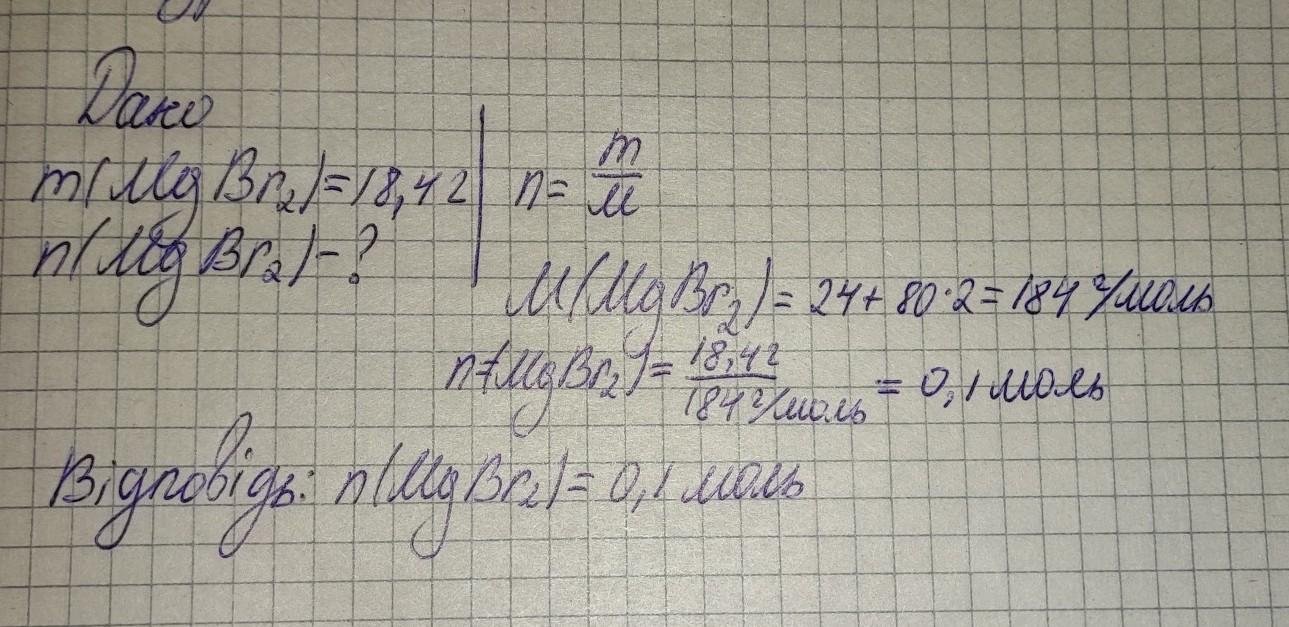 Дано
m(MgBr₂)=18,4г
n(MgBr₂)-?
n= m/M
M(MgBr₂)= 24+80·2=184 г/моль
n(MgBr₂)= 18,4г/184 г/моль = 0,1 моль
Відповідь: n(MgBr₂)= 0,1 моль